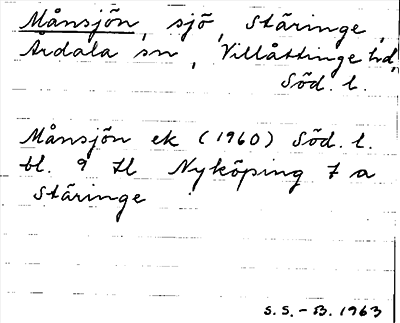 Månsjön, sjö, Stäringe,
Årdala sn, Villåttinge hd,
Söd. l.
Månsjön ek (1960) Söd. l.
bl. 9 H Nyköping 7 a
Stäringe
S.S.-B. 1963